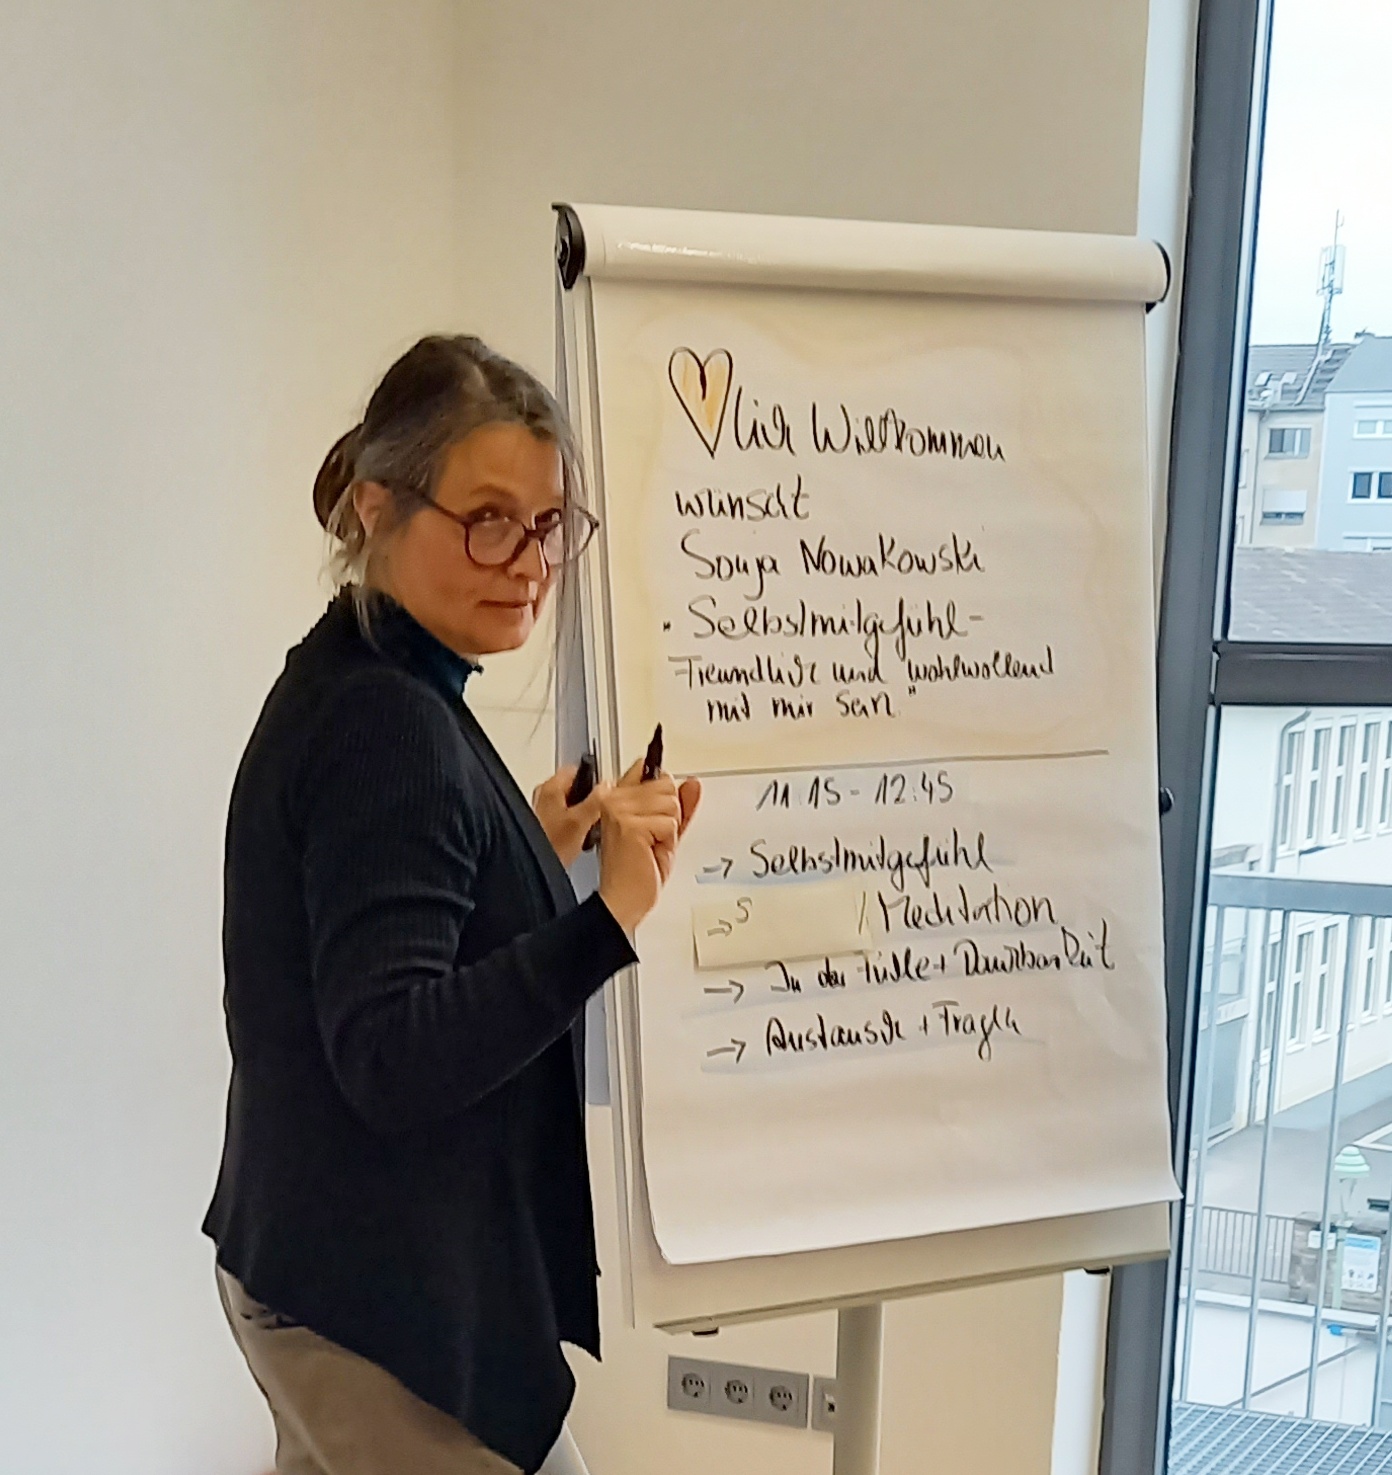 lich Willkommen
wünscht
Sonja Nowakowski
"Selbstmitgefühl-
Freundlich und wohlwollend
mit mir sein."
11:15 - 12:45
→ Selbstmitgefühl
→ S / Meditation
→ In der Fülle + Dankbarkeit
→ Austausch + Fragen